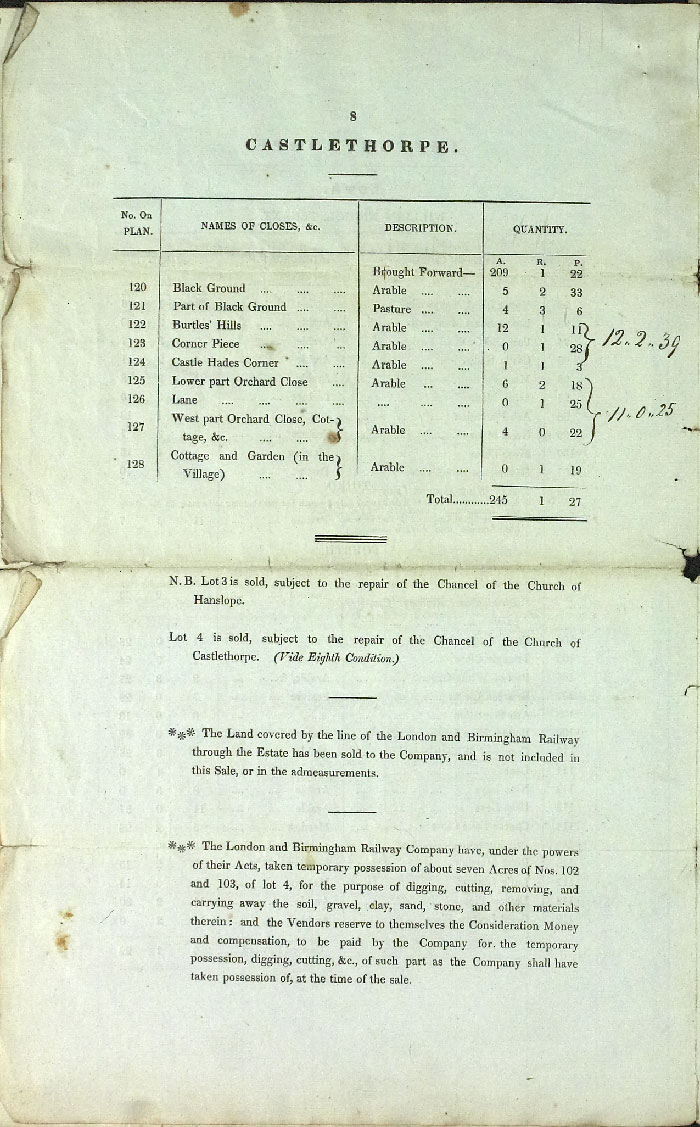 8
CASTLETHORPE.
No. On PLAN. NAMES OF CLOSES, &c. DESCRIPTION. QUANTITY.
A. R. P.
Brought Forward— 209 1 22
120 Black Ground .... .... .... Arable .... .... 5 2 33
121 Part of Black Ground .... .... Pasture .... .... 4 3 6
122 Burtles' Hills .... .... .... Arable .... .... 12 1 11
123 Corner Piece .... .... .... Arable .... .... 0 1 28 } 12..2..39
124 Castle Hades Corner .... .... Arable .... .... 1 1 3
125 Lower part Orchard Close .... Arable .... .... 6 2 18
126 Lane .... .... .... .... .... .... .... 0 1 25 } 11..0..25
127 West part Orchard Close, Cot-
tage, &c. .... .... } Arable .... .... 4 0 22
128 Cottage and Garden (in the
Village) .... .... } Arable .... .... 0 1 19
Total............245 1 27
N.B. Lot 3 is sold, subject to the repair of the Chancel of the Church of
Hanslope.
Lot 4 is sold, subject to the repair of the Chancel of the Church of
Castlethorpe. (Vide Eighth Condition.)
*** The Land covered by the line of the London and Birmingham Railway
through the Estate has been sold to the Company, and is not included in
this Sale, or in the admeasurements.
*** The London and Birmingham Railway Company have, under the powers
of their Acts, taken temporary possession of about seven Acres of Nos. 102
and 103, of lot 4, for the purpose of digging, cutting, removing, and
carrying away the soil, gravel, clay, sand, stone, and other materials
therein: and the Vendors reserve to themselves the Consideration Money
and compensation, to be paid by the Company for the temporary
possession, digging, cutting, &c., of such part as the Company shall have
taken possession of, at the time of the sale.